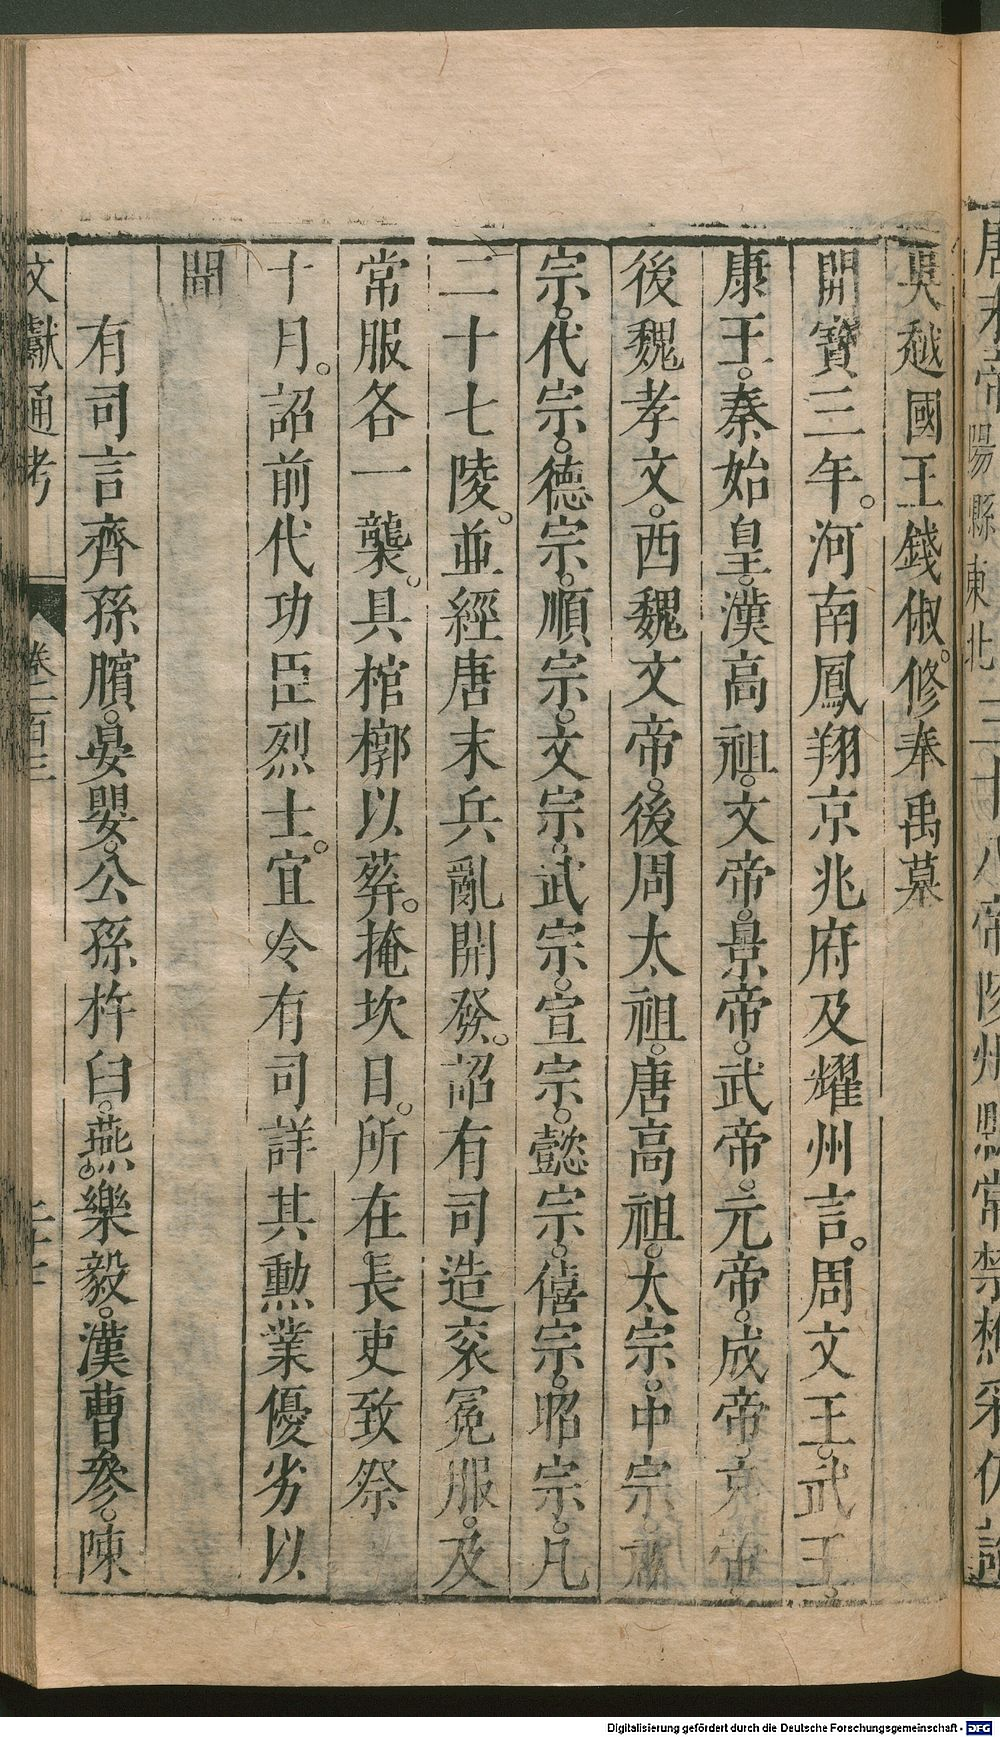 吳越國王錢俶。修奉禹墓
開寶三年。河南鳳翔京兆府及耀州言。周文王。武王。
康王。秦始皇。漢高祖。文帝。景帝。武帝。元帝。成帝。哀帝。
後魏孝文。西魏文帝。後周太祖。唐高祖。太宗。中宗。肅
宗。代宗。德宗。順宗。文宗。武宗。宣宗。懿宗。僖宗。昭宗。凡
二十七陵。並經唐末兵亂開發。詔有司造袞冕服。及
常服各一襲。具棺槨以葬。掩坎日。所在長吏致祭
十月。詔前代功臣烈士。宜令有司詳其勳業優劣以
聞
有司言齊孫臏。晏嬰。公孫杵臼。燕樂毅。漢曹參。陳
文獻通考 卷一百三
Digitalisierung gefördert durch die Deutsche Forschungsgemeinschaft - DFG